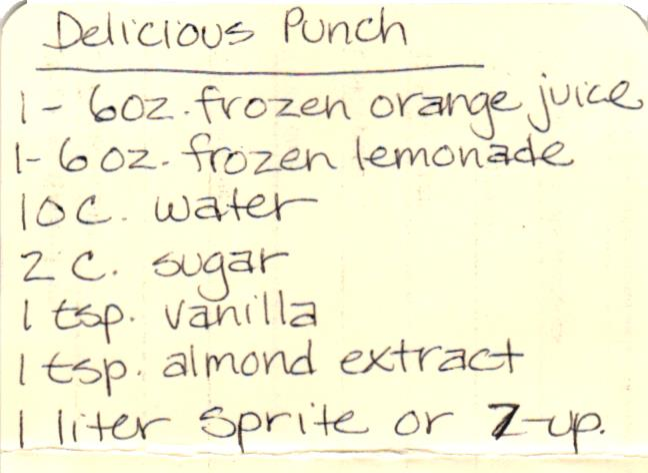 Delicious Punch
1 - 6oz. frozen orange juice
1- 6 oz. frozen lemonade
10 c. water
2 c. sugar
1 tsp. vanilla
1 tsp. almond extract
1 liter sprite or 7-up.